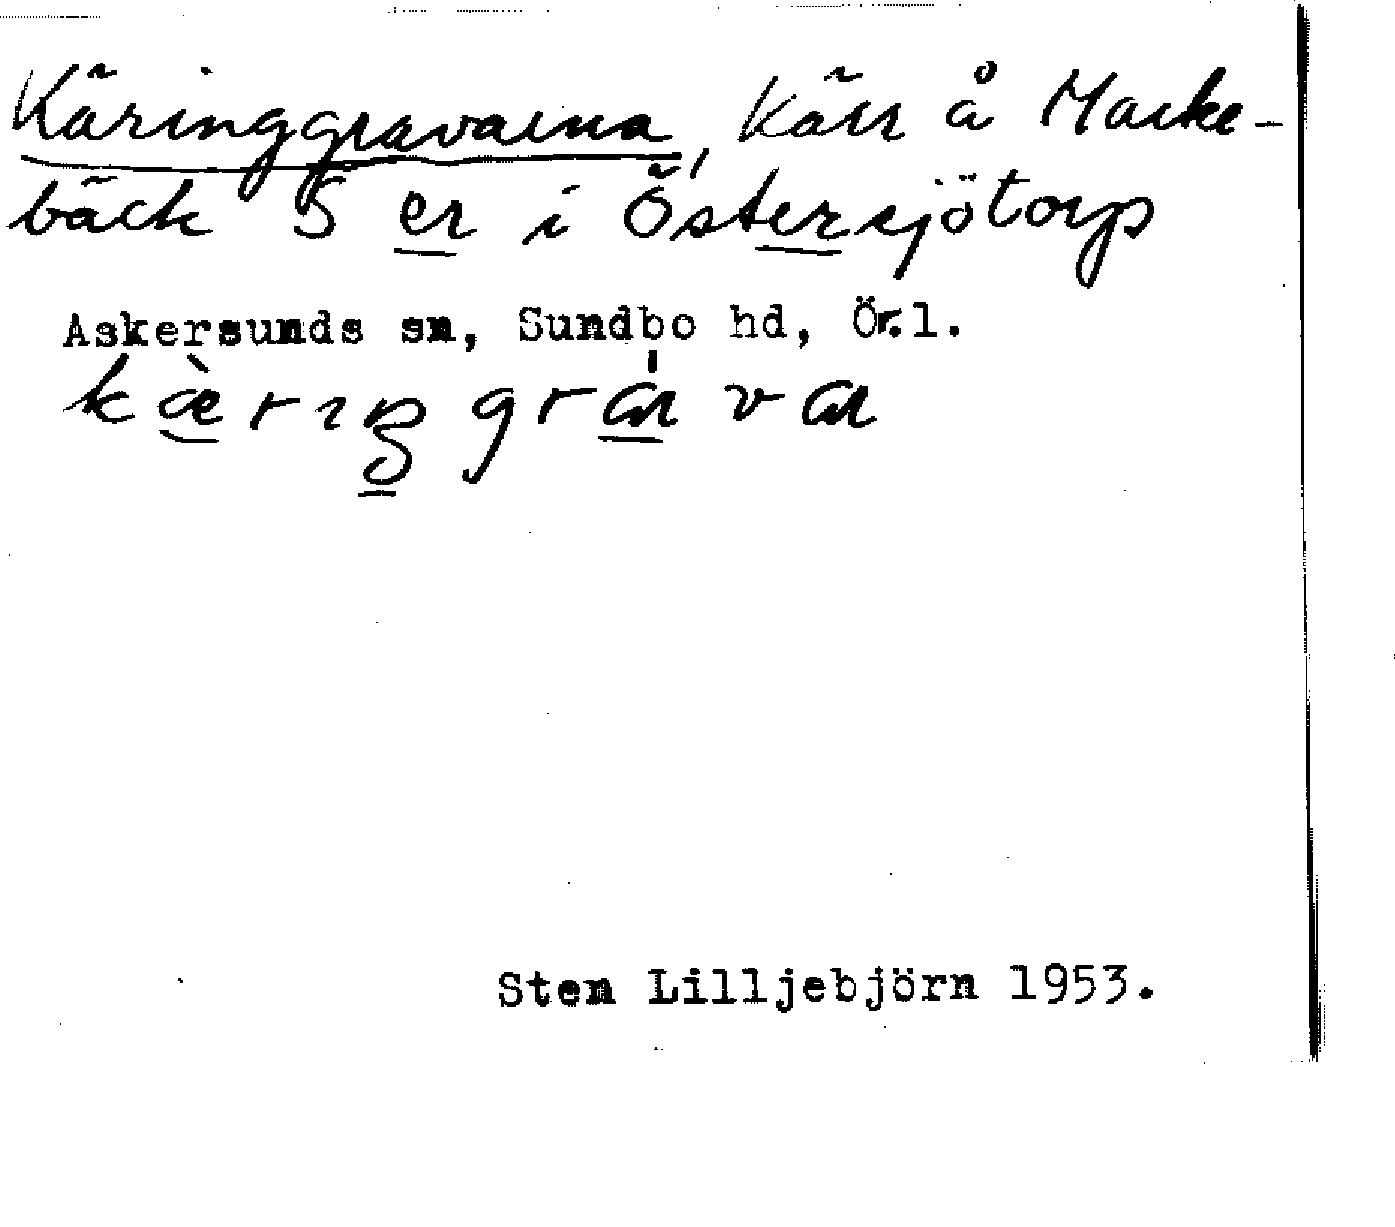 Käringgravarna, Kärr å Marke-
bäck 5 er i Östersjötorp
Askersunds sn, Sundbo hd, Ör.l.
kæ̀rıŋgrávar
Sten Lilljebjörn 1953.